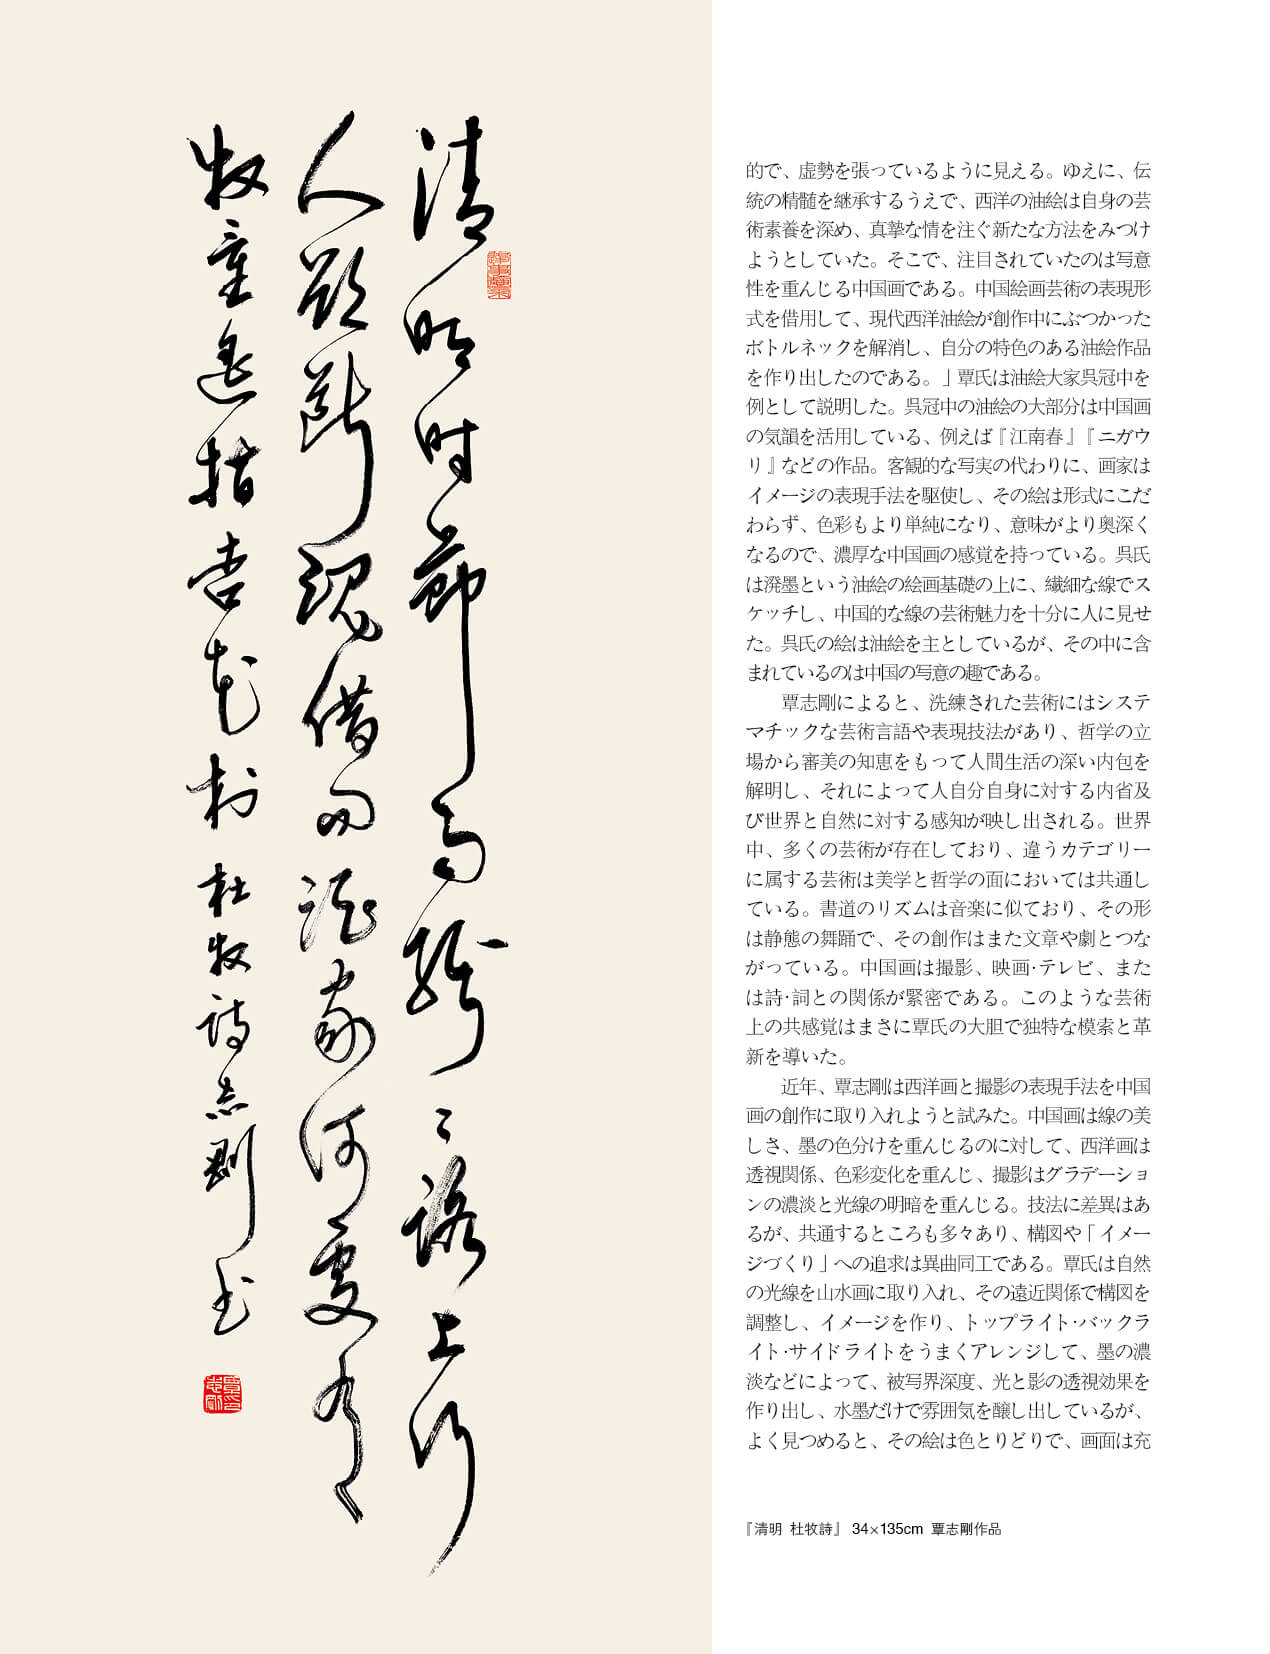 清明时節雨紛〻路上行
人欲断魂借问酒家何處有
牧童遥指杏花村 杜牧詩志剛书
的で、虚勢を張っているように見える。ゆえに、伝
統の精髄を継承するうえで、西洋の油絵は自身の芸
術素養を深め、真摯な情を注ぐ新たな方法をみつけ
ようとしていた。そこで、注目されていたのは写意
性を重んじる中国画である。中国絵画芸術の表現形
式を借用して、現代西洋油絵が創作中にぶつかった
ボトルネックを解消し、自分の特色のある油絵作品
を作り出したのである。」覃氏は油絵大家呉冠中を
例として説明した。呉冠中の油絵の大部分は中国画
の気韻を活用している、例えば『江南春』『ニガウ
リ』などの作品。客観的な写実の代わりに、画家は
イメージの表現手法を駆使し、その絵は形式にこだ
わらず、色彩もより単純になり、意味がより奥深く
なるので、濃厚な中国画の感覚を持っている。呉氏
は溌墨という油絵の絵画基礎の上に、繊細な線でス
ケッチし、中国的な線の芸術魅力を十分に人に見せ
た。呉氏の絵は油絵を主としているが、その中に含
まれているのは中国の写意の趣である。
覃志剛によると、洗練された芸術にはシステ
マチックな芸術言語や表現技法があり、哲学の立
場から審美の知恵をもって人間生活の深い内包を
解明し、それによって人自分自身に対する内省及
び世界と自然に対する感知が映し出される。世界
中、多くの芸術が存在しており、違うカテゴリー
に属する芸術は美学と哲学の面においては共通し
ている。書道のリズムは音楽に似ており、その形
は静態の舞踊で、その創作はまた文章や劇とつな
がっている。中国画は撮影、映画·テレビ、また
は詩·詞との関係が緊密である。このような芸術
上の共感覚はまさに覃氏の大胆で独特な模索と革
新を導いた。
近年、覃志剛は西洋画と撮影の表現手法を中国
画の創作に取り入れようと試みた。中国画は線の美
しさ、墨の色分けを重んじるのに対して、西洋画は
透視関係、色彩変化を重んじ、撮影はグラデーショ
ンの濃淡と光線の明暗を重んじる。技法に差異はあ
るが、共通するところも多々あり、構図や「イメー
ジづくり」への追求は異曲同工である。覃氏は自然
の光線を山水画に取り入れ、その遠近関係で構図を
調整し、イメージを作り、トップライト·バックラ
イト·サイドライトをうまくアレンジして、墨の濃
淡などによって、被写界深度、光と影の透視効果を
作り出し、水墨だけで雰囲気を醸し出しているが、
よく見つめると、その絵は色とりどりで、画面は充
『清明 杜牧詩』 34×135cm 覃志剛作品